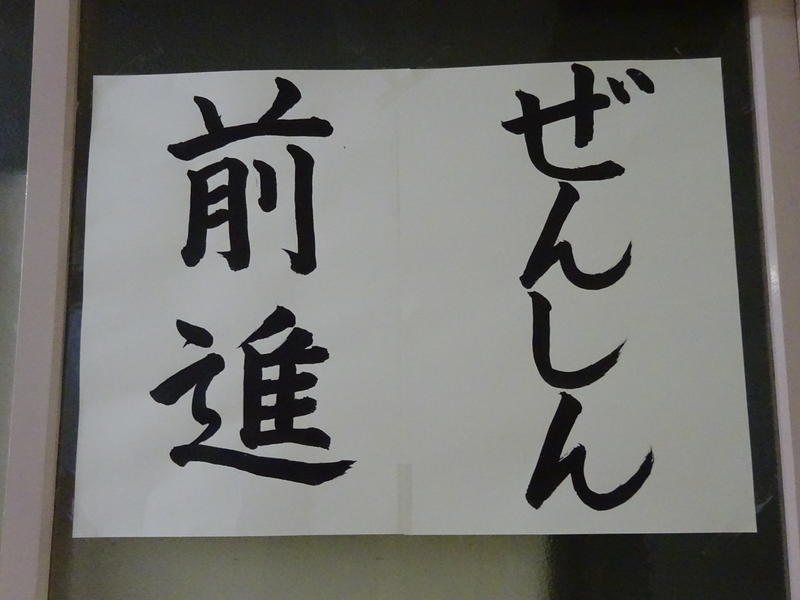 ぜんしん
前進